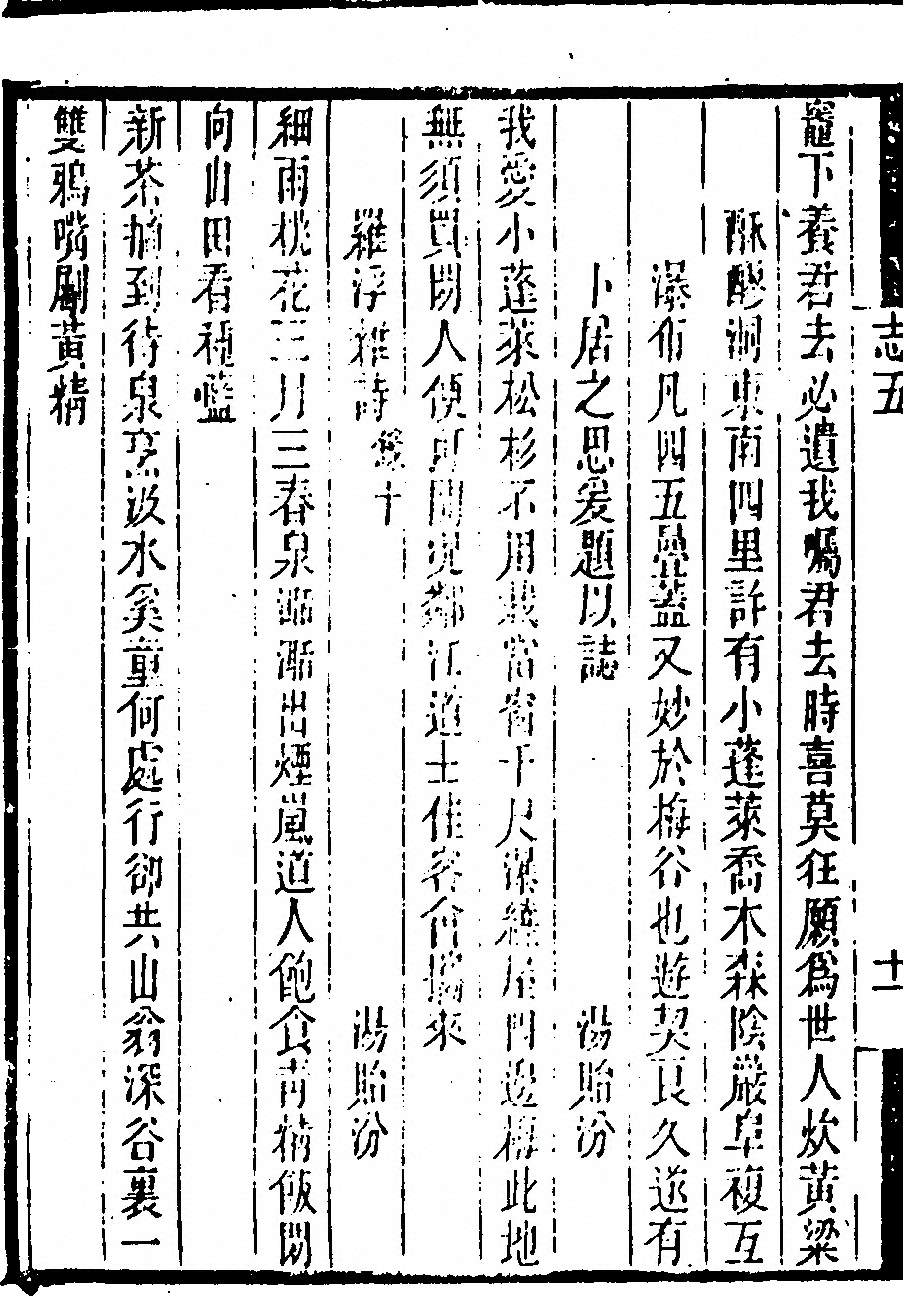 志五
十一
竈下養君去必遺我囑君去時喜莫狂願爲世人炊黃粱
酥醪洞東南四里許有小蓬萊喬木森陰巖阜複互
瀑布凡四五疊蓋又妙於梅谷也遊契良久遂有
卜居之思爰題以誌 湯貽汾
我愛小蓬萊松杉不用栽當窗千尺瀑繞屋四邊梅此地
無須買閒人便可開況鄰江道士佳客合攜來
羅浮雜詩 錄十 湯貽汾
細雨桃花三月三春泉㶁㶁出煙嵐道人飽食青精飯閒
向山田看種藍
新茶摘到待泉烹汲水奚童何處行卻共山翁深谷裏一
雙鴉嘴劚黃精